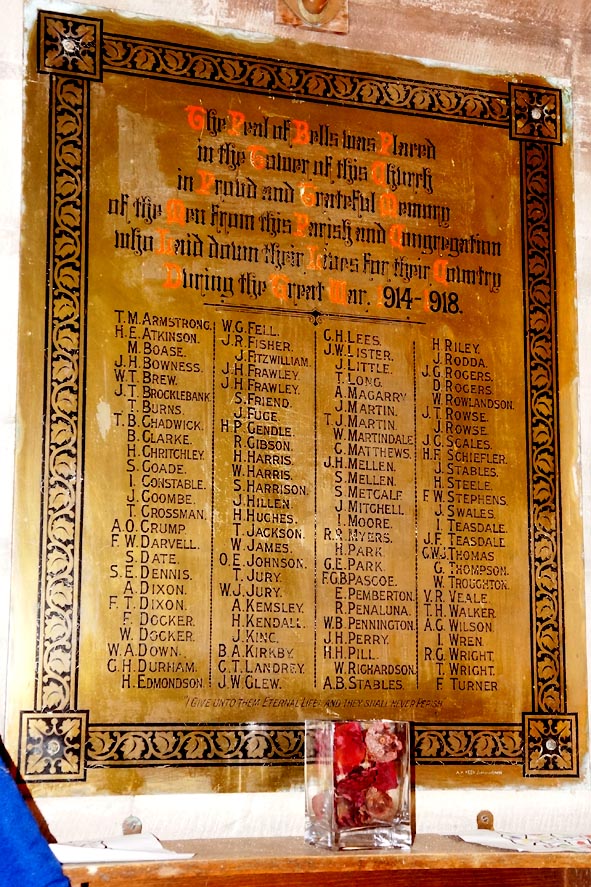 The Peal of Bells was Placed
in the Tower of this Church
in Proud and Grateful Memory
of the Men from this Parish and Congregation
who Laid down their Lives for their Country
During the Great War. 1914-1918.
T. M. ARMSTRONG.
H. E. ATKINSON.
M. BOASE.
J. H. BOWNESS.
W. T. BREW.
J. T. BROCKLEBANK
T. BURNS.
T. B. CHADWICK.
B. CLARKE.
H. CHRITCHLEY.
S. COADE.
I. CONSTABLE.
J. COOMBE.
T. CROSSMAN.
A. O. CRUMP.
F. W. DARVELL.
S. DATE.
S. E. DENNIS.
A. DIXON.
F. T. DIXON.
F. DOCKER.
W. DOCKER.
W. A. DOWN.
G. H. DURHAM.
H. EDMONDSON
W. G. FELL.
J. R. FISHER.
J. FITZWILLIAM.
J. H. FRAWLEY.
J. H. FRAWLEY.
S. FRIEND.
J. FUGE
H. P. GENDLE.
R. GIBSON.
H. HARRIS.
W. HARRIS.
S. HARRISON.
J. HILLEN.
H. HUGHES.
T. JACKSON.
W. JAMES.
O. E. JOHNSON.
T. JURY.
W. J. JURY.
A. KEMSLEY.
H. KENDALL.
J. KING.
B. A. KIRKBY.
C. T. LANDREY.
J. W. GLEW.
G. H. LEES.
J. W. LISTER.
J. LITTLE.
T. LONG.
A. MAGARRY
J. MARTIN.
T. J. MARTIN.
W. MARTINDALE
G. MATTHEWS.
J. H. MELLEN.
S. MELLEN.
S. METCALF.
J. MITCHELL
I. MOORE.
R. S. MYERS.
H. PARK.
G. E. PARK.
F. G. B. PASCOE.
E. PEMBERTON.
R. PENALUNA.
W. B. PENNINGTON.
J. H. PERRY.
H. H. PILL.
W. RICHARDSON.
A. B. STABLES.
H. RILEY.
J. RODDA.
J. G. ROGERS.
D. ROGERS.
W. ROWLANDSON.
J. T. ROWSE.
J. ROWSE.
J. C. SCALES.
H. F. SCHIEFLER.
J. STABLES.
H. STEELE.
F. W. STEPHENS.
J. SWALES.
I. TEASDALE.
J. F. TEASDALE
C. W. J. THOMAS
G. THOMPSON.
W. TROUGHTON.
V. R. VEALE.
T. H. WALKER.
A. G. WILSON.
I. WREN.
R. G. WRIGHT.
T. WRIGHT.
F. TURNER
"I GIVE UNTO THEM ETERNAL LIFE: AND THEY SHALL NEVER PERISH